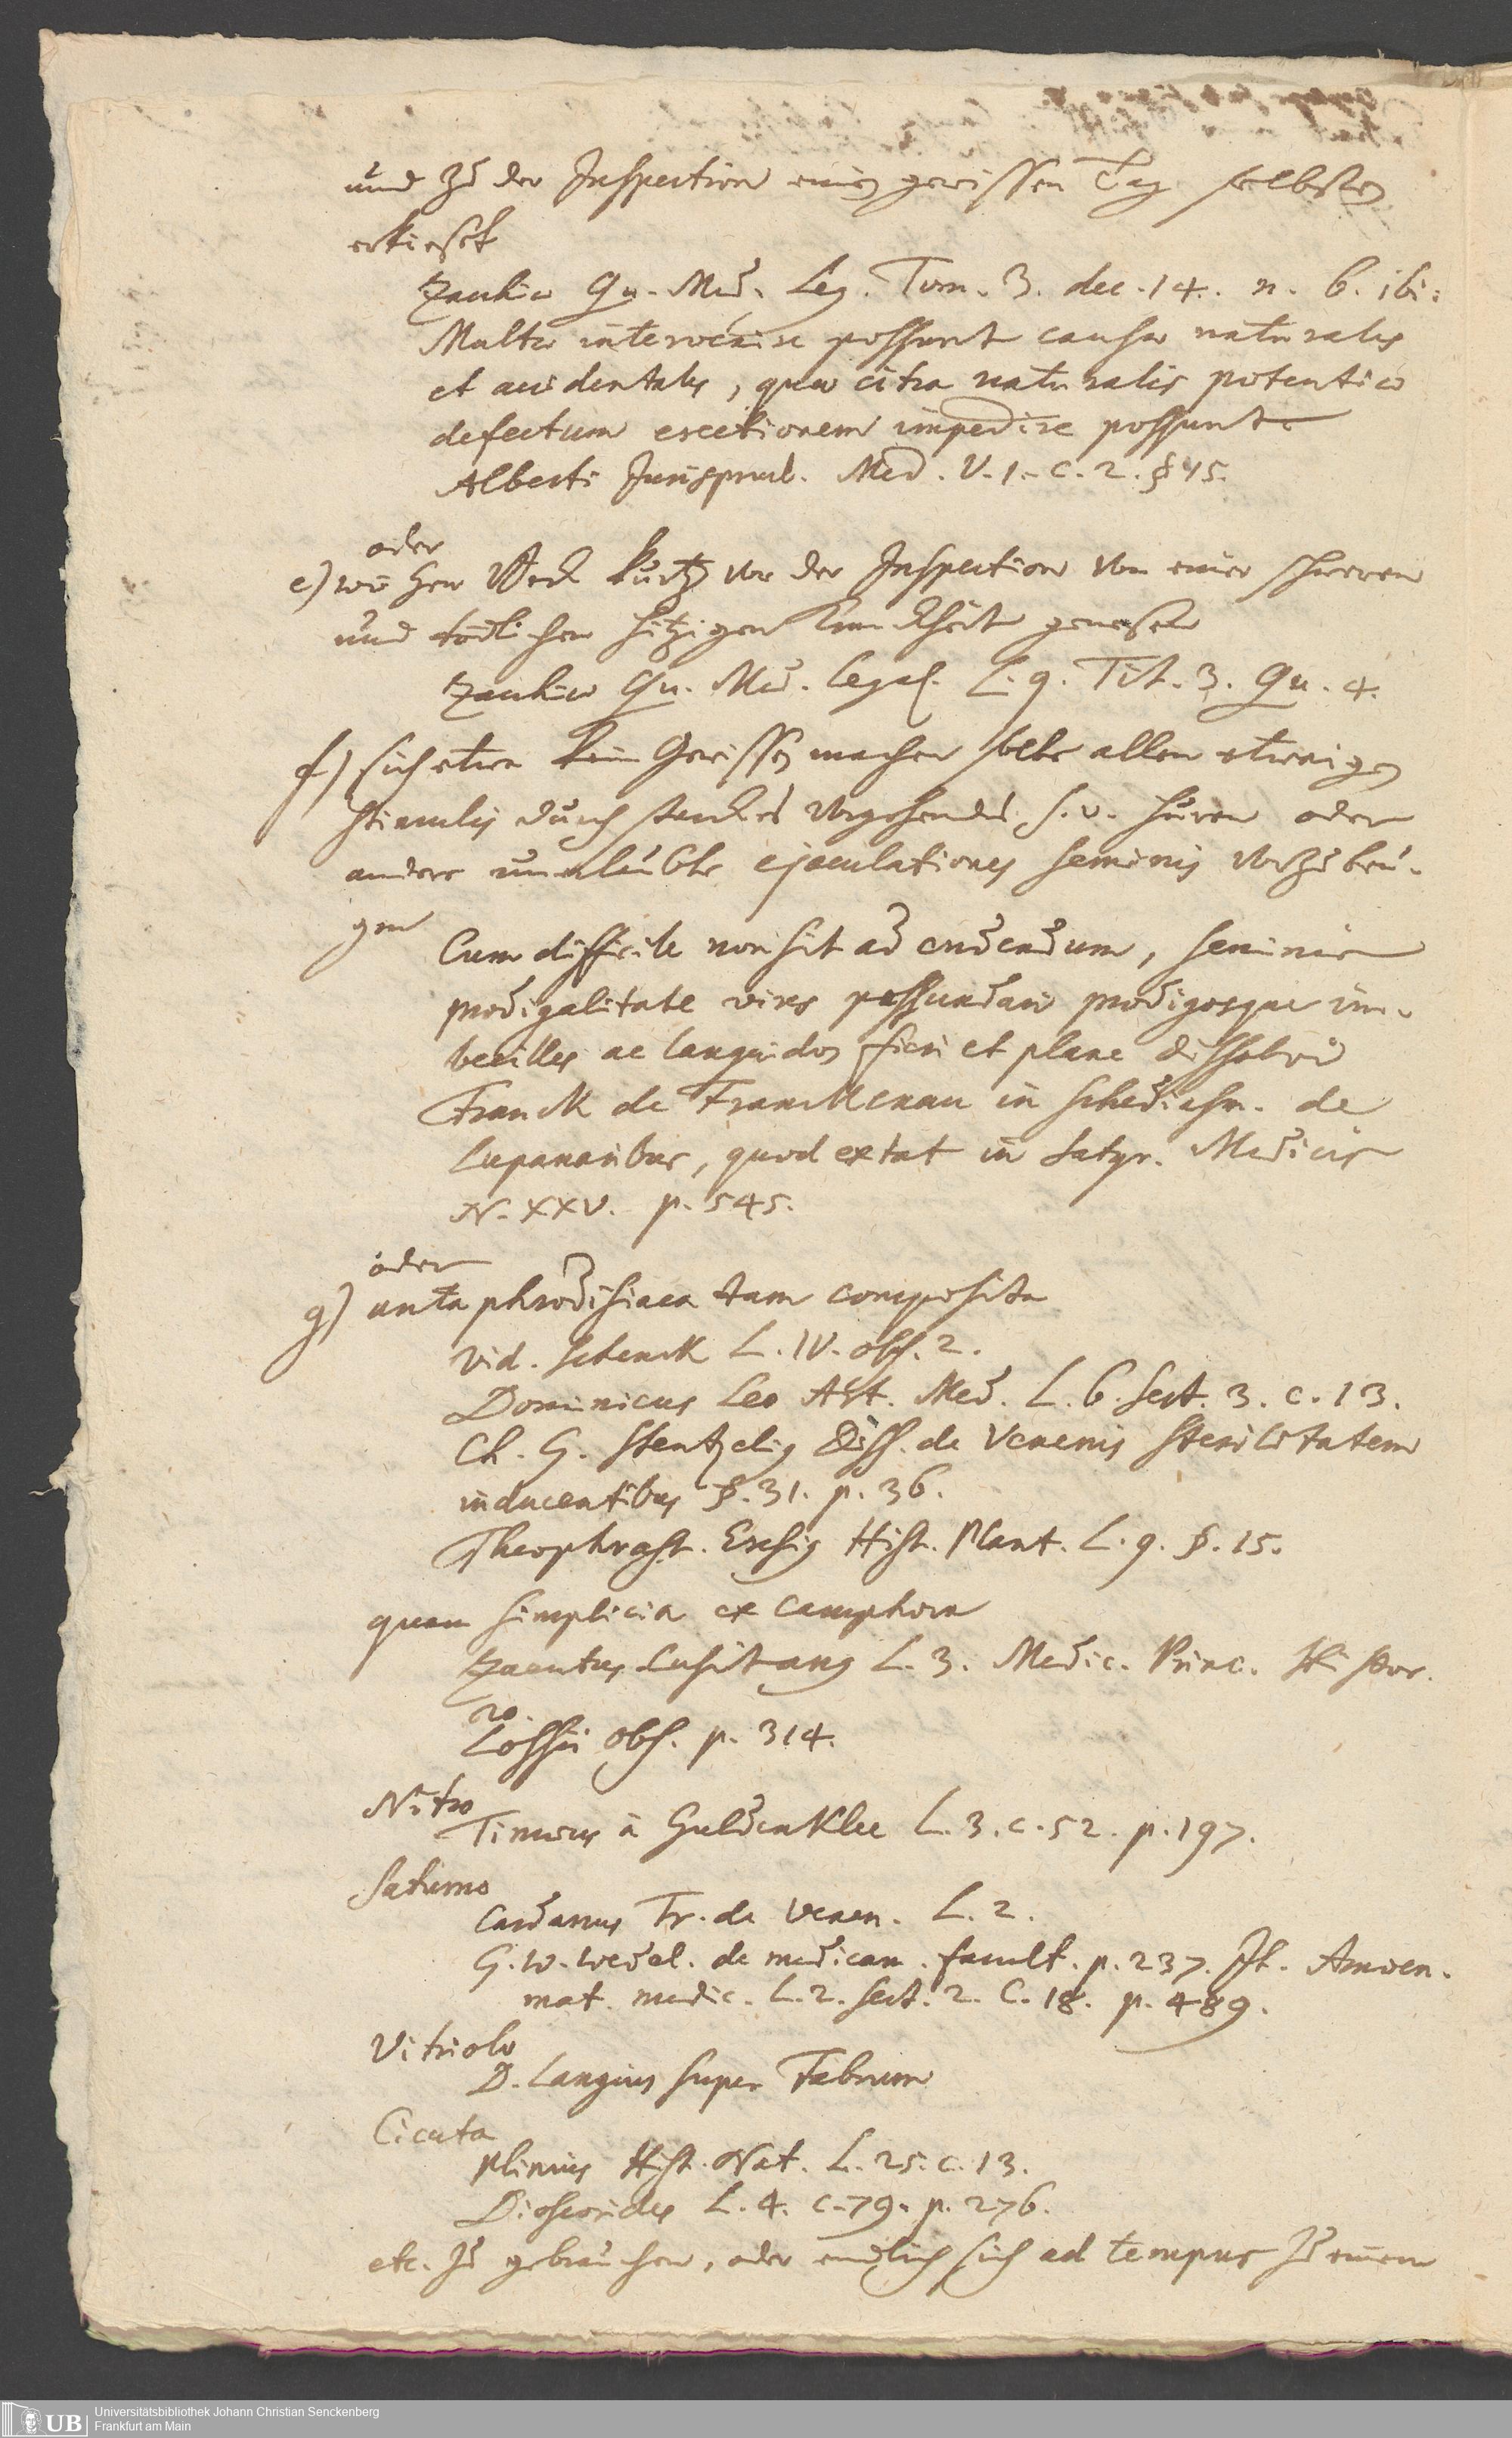 und zu der Inspection einen gewissen Tag selbsten
erkiesst
Zachiae Qu. Med. Leg. Tom. 3. dec. 14. n. 6. ibi:
Multae intervenire possunt causae naturales
et accidentales, quae citra naturalis potentiae
defectum erectionem impedire possunt.
Alberti Jurisprud. Med. V. 1. c. 2. § 45.
oder
e) wie Herr kurtz vor der Inspection von einer schweren
und tödlichen hitzigen Kranckheit genesen
Zachiae Qu. Med. legal. L. 9. Tit. 3. Qu. 4.
f) sich etwa kein Gewissen machen solte allen etwaigen
stimulis durch vorgehendes s. v. huren oder
andere unerlaubte ejaculationes seminis vorzubeu-
gen
Cum difficile non sit ad credendum, seminis
prodigalitate vires pessundari prodigosque im-
becilles ac languidos fieri et plane dissolvi
Franck de Franckenau in schediasm. de
Lupanaribus, quod extat in Satyr. Medicis
N. XXV. p. 545.
oder
g) antaphrodisiaca tam composita
vid. Schenck L. IV. obs. 2.
Dominicus Leo Art. Med. L. 6. Sect. 3. c. 13.
Ch. G. Stentzelig Diss. de Venenis sterilitatem
inducentibus §. 31. p. 36.
Theophrast. Eresig Hist. Plant. L. 9. §. 15.
quam simplicia ex camphora
Zacutus Lusitanus L. 3. Medic. Princ. Histor.
20.
Lossii obs. p. 314.
Nitro
Timaeus à Guldenklee L. 3. c. 52. p. 197.
Saturno
Cardanus Tr. de Venen. L. 2.
G. W. Wedel. de medicam. facult. p. 237. It. Amoen.
mat. medic. L. 2. Sect. 2. C. 18. p. 489.
Vitriolo
D. Langius super Fabrum
Cicuta
Plinius Hist. Nat. L. 25. c. 13.
Dioscorides L. 4. c. 79. p. 276.
etc. zu gebrauchen, oder endlich sich ad tempus zu einem
UB
Universitätsbibliothek Johann Christian Senckenberg
Frankfurt am Main